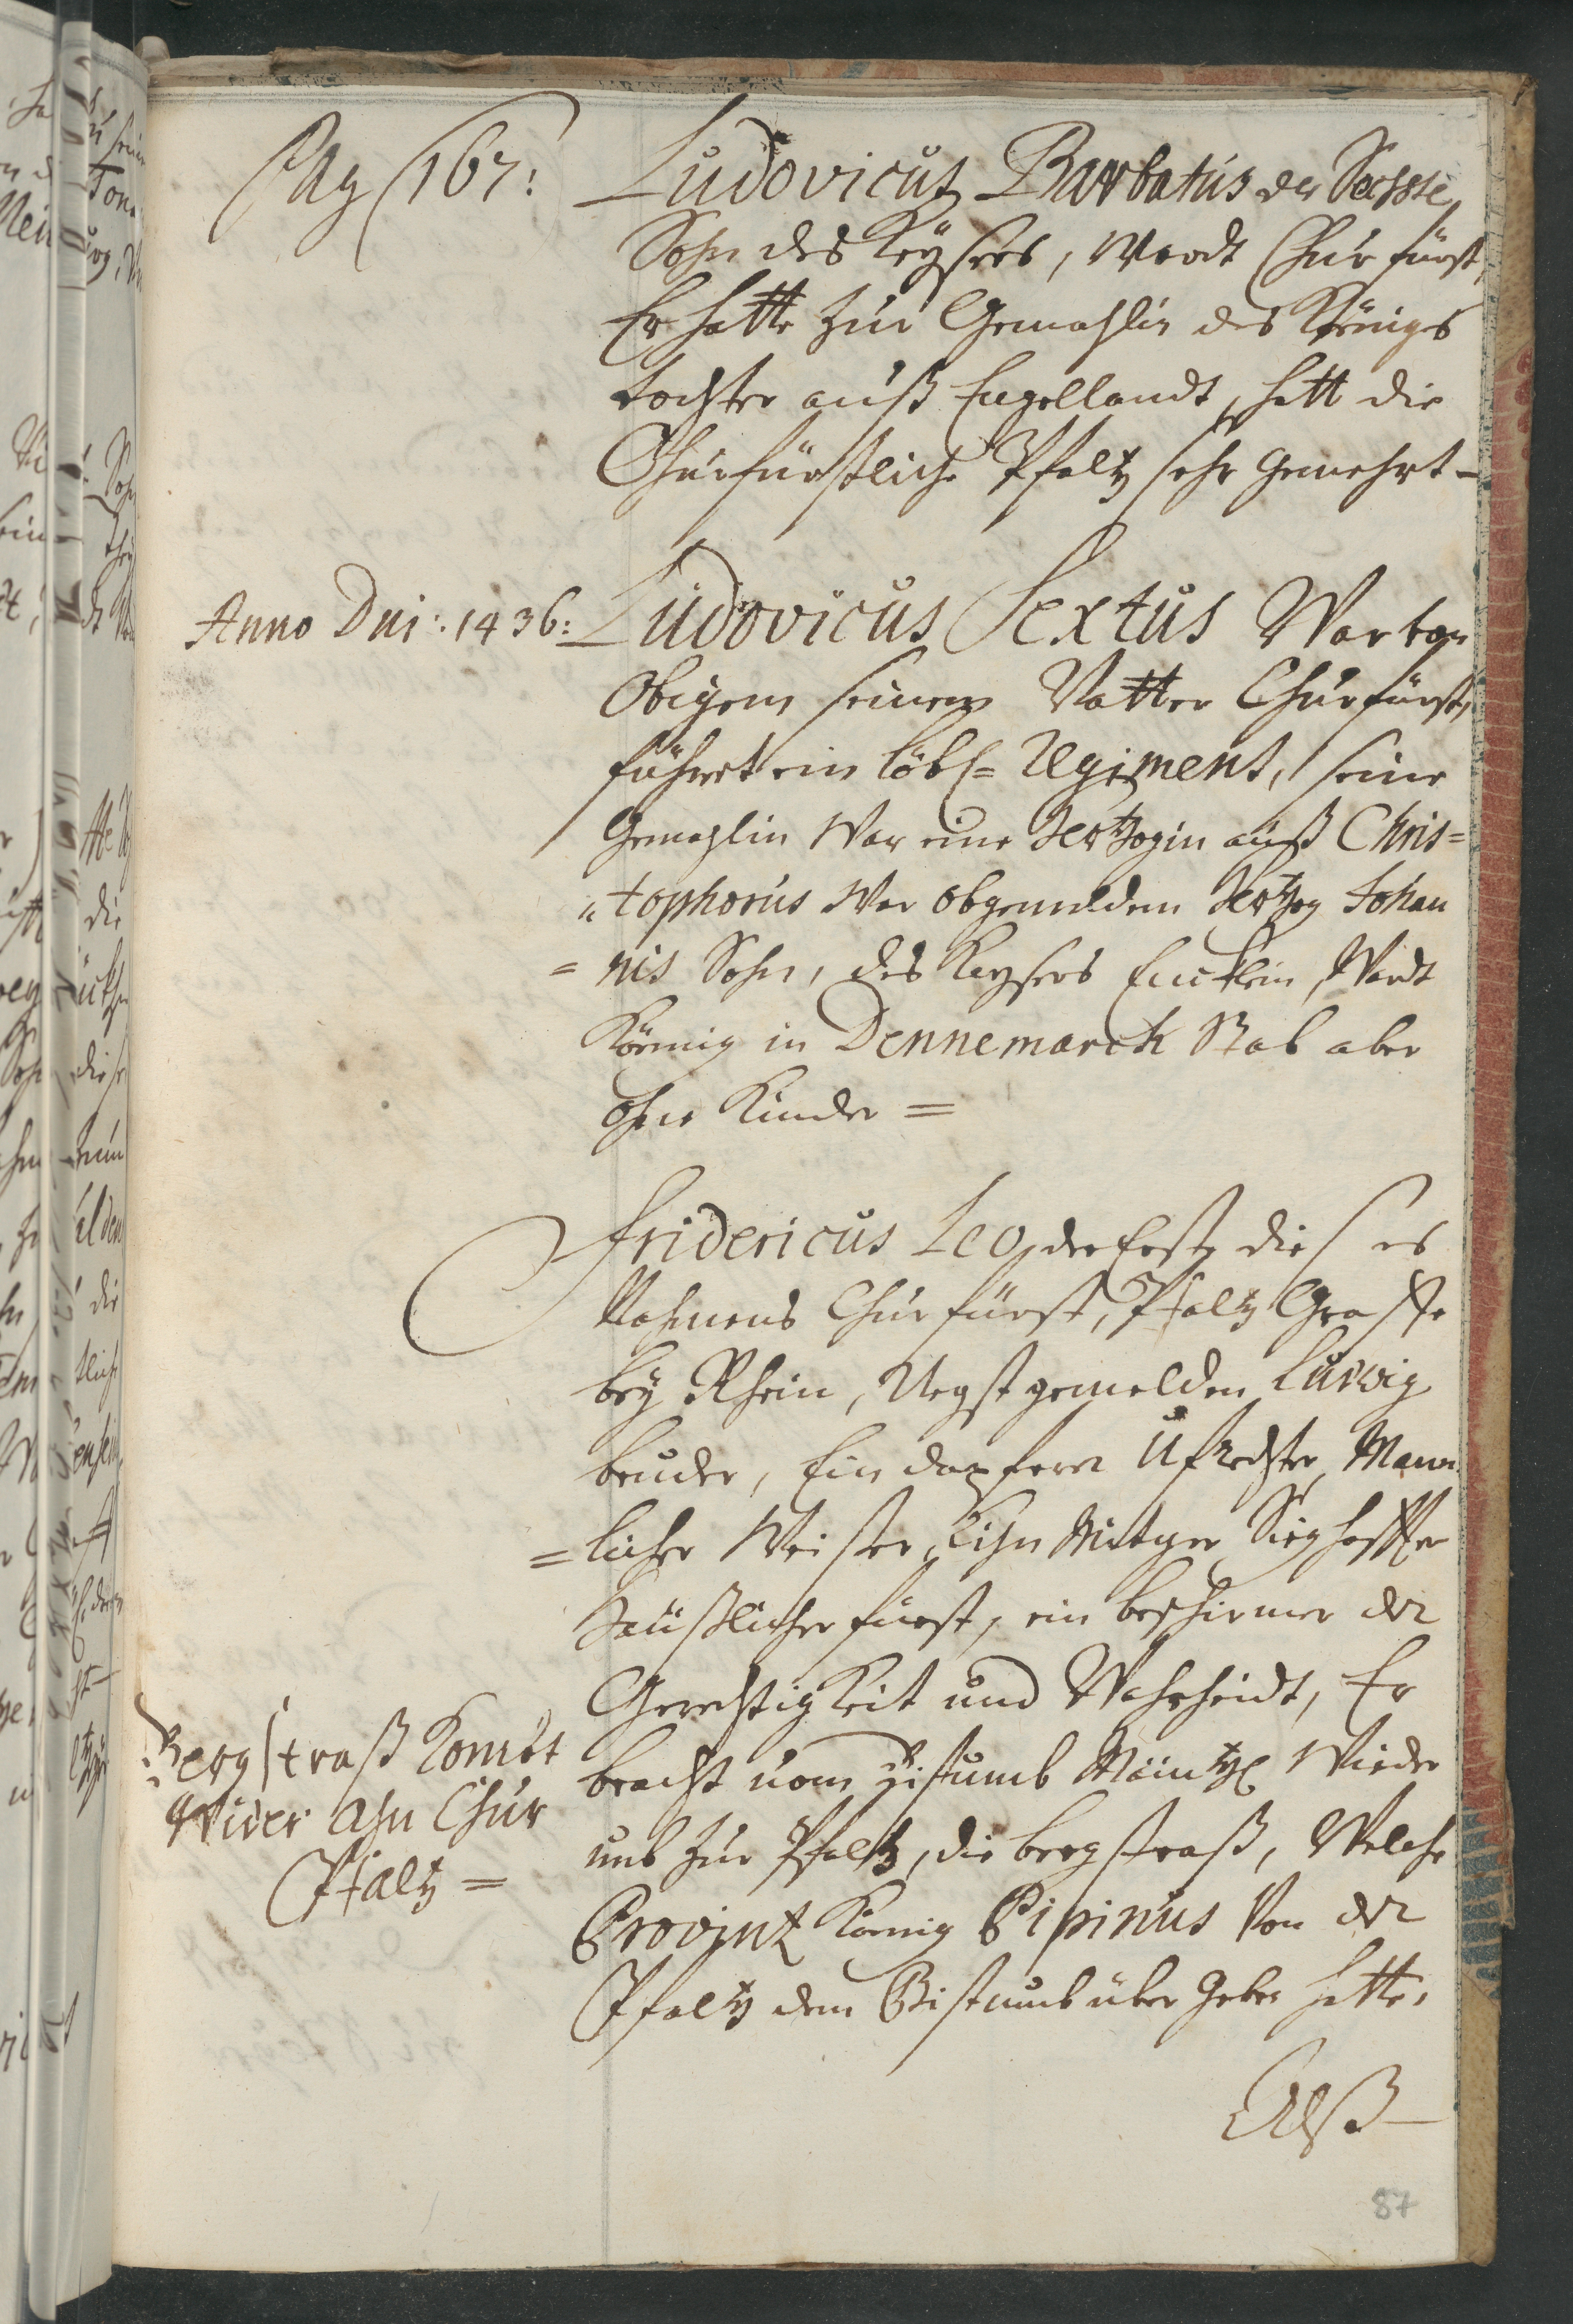 Pag 167:
Ludovicus Barbatus der Sechste
Sohn des Keysers, Wardt Churfürst,
Er hatte zur Gemahlin des Königs
tochter auß Engellandt, hatt die
Churfürstliche Pfaltz sehr gemehrt –
Anno Dni: 1436:
Ludovicus Sextus War von
Obigem seinem Vatter Churfürst,
führet ein löbl= Regiment, seine
Gemahlin War eine Hertzogin auß Chris=
"tophorus War obgemelden Hertzog Johan
= nis Sohn, des Keysers Encklein, Wardt
König in Dennemarck Starb aber
ohne Kinder =
Fridericus Leo, der Erste dieses
Nahmens Churfürst, Pfaltz Graffe
bey Rhein, Negst gemelden Ludwig
bruder, Ein dapferer Ufrechter, Mann
= licher Weiser, Kühn Mutger Sieghaffter
Fürst, ein beschirmer der
Gerechtigkeit und Wahrheidt, Er
bracht vom Bistumb Maintz Wieder
umb zur Pfaltz, die bergstraß, Welche
Provintz König Pipinus Von der
Pfaltz dem Bistumb über geben hatte,
Bergstraß Komбt
Wider ahn Chur
Pfaltz =
Alß –
87